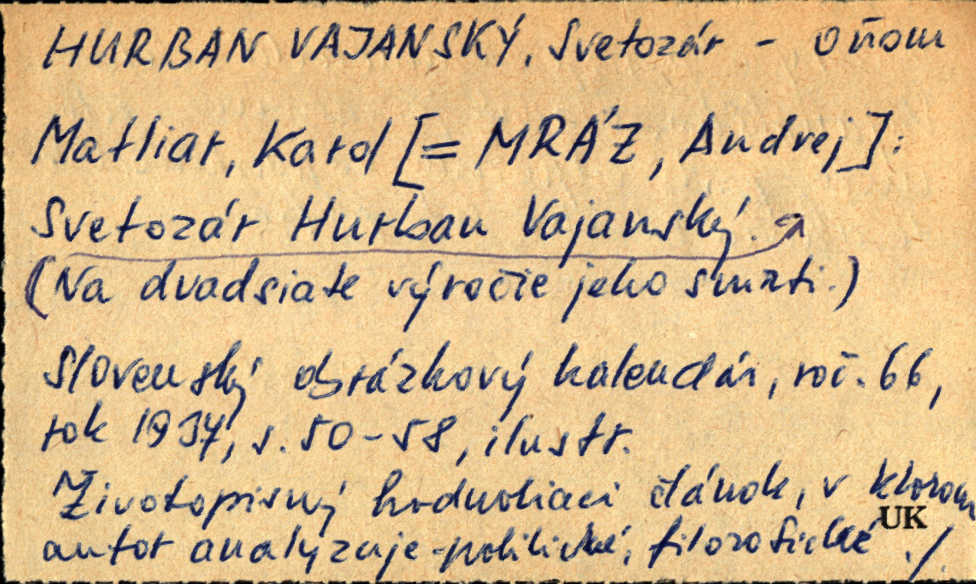 HURBAN VAJANSKÝ, Svetozár - o ňom
Matliar, Karol [= MRÁZ, Andrej]:
Svetozár Hurban Vajanský.
(Na dvadsiate výročie jeho smrti.)
Slovenský obrázkový kalendár, roč. 66,
rok 1937, s. 50-58, ilustr.
Životopisný hodnotiaci článok, v ktorom
UK
autor analyzuje politické, filozofické ./.